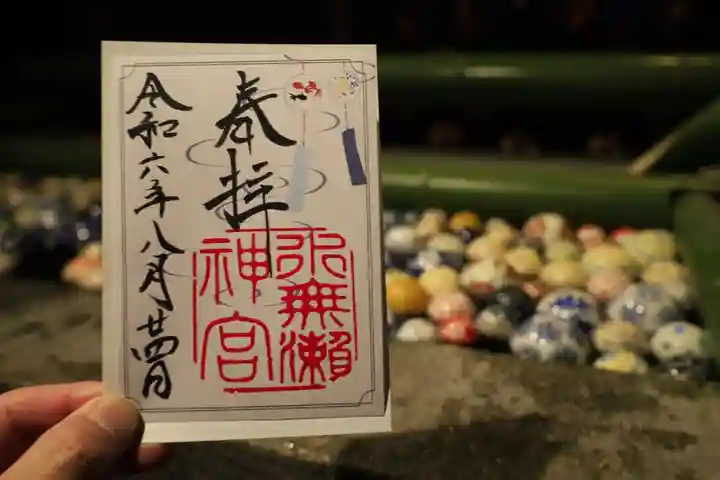 奉拝
水無瀬
神宮
令和六年八月廿四日